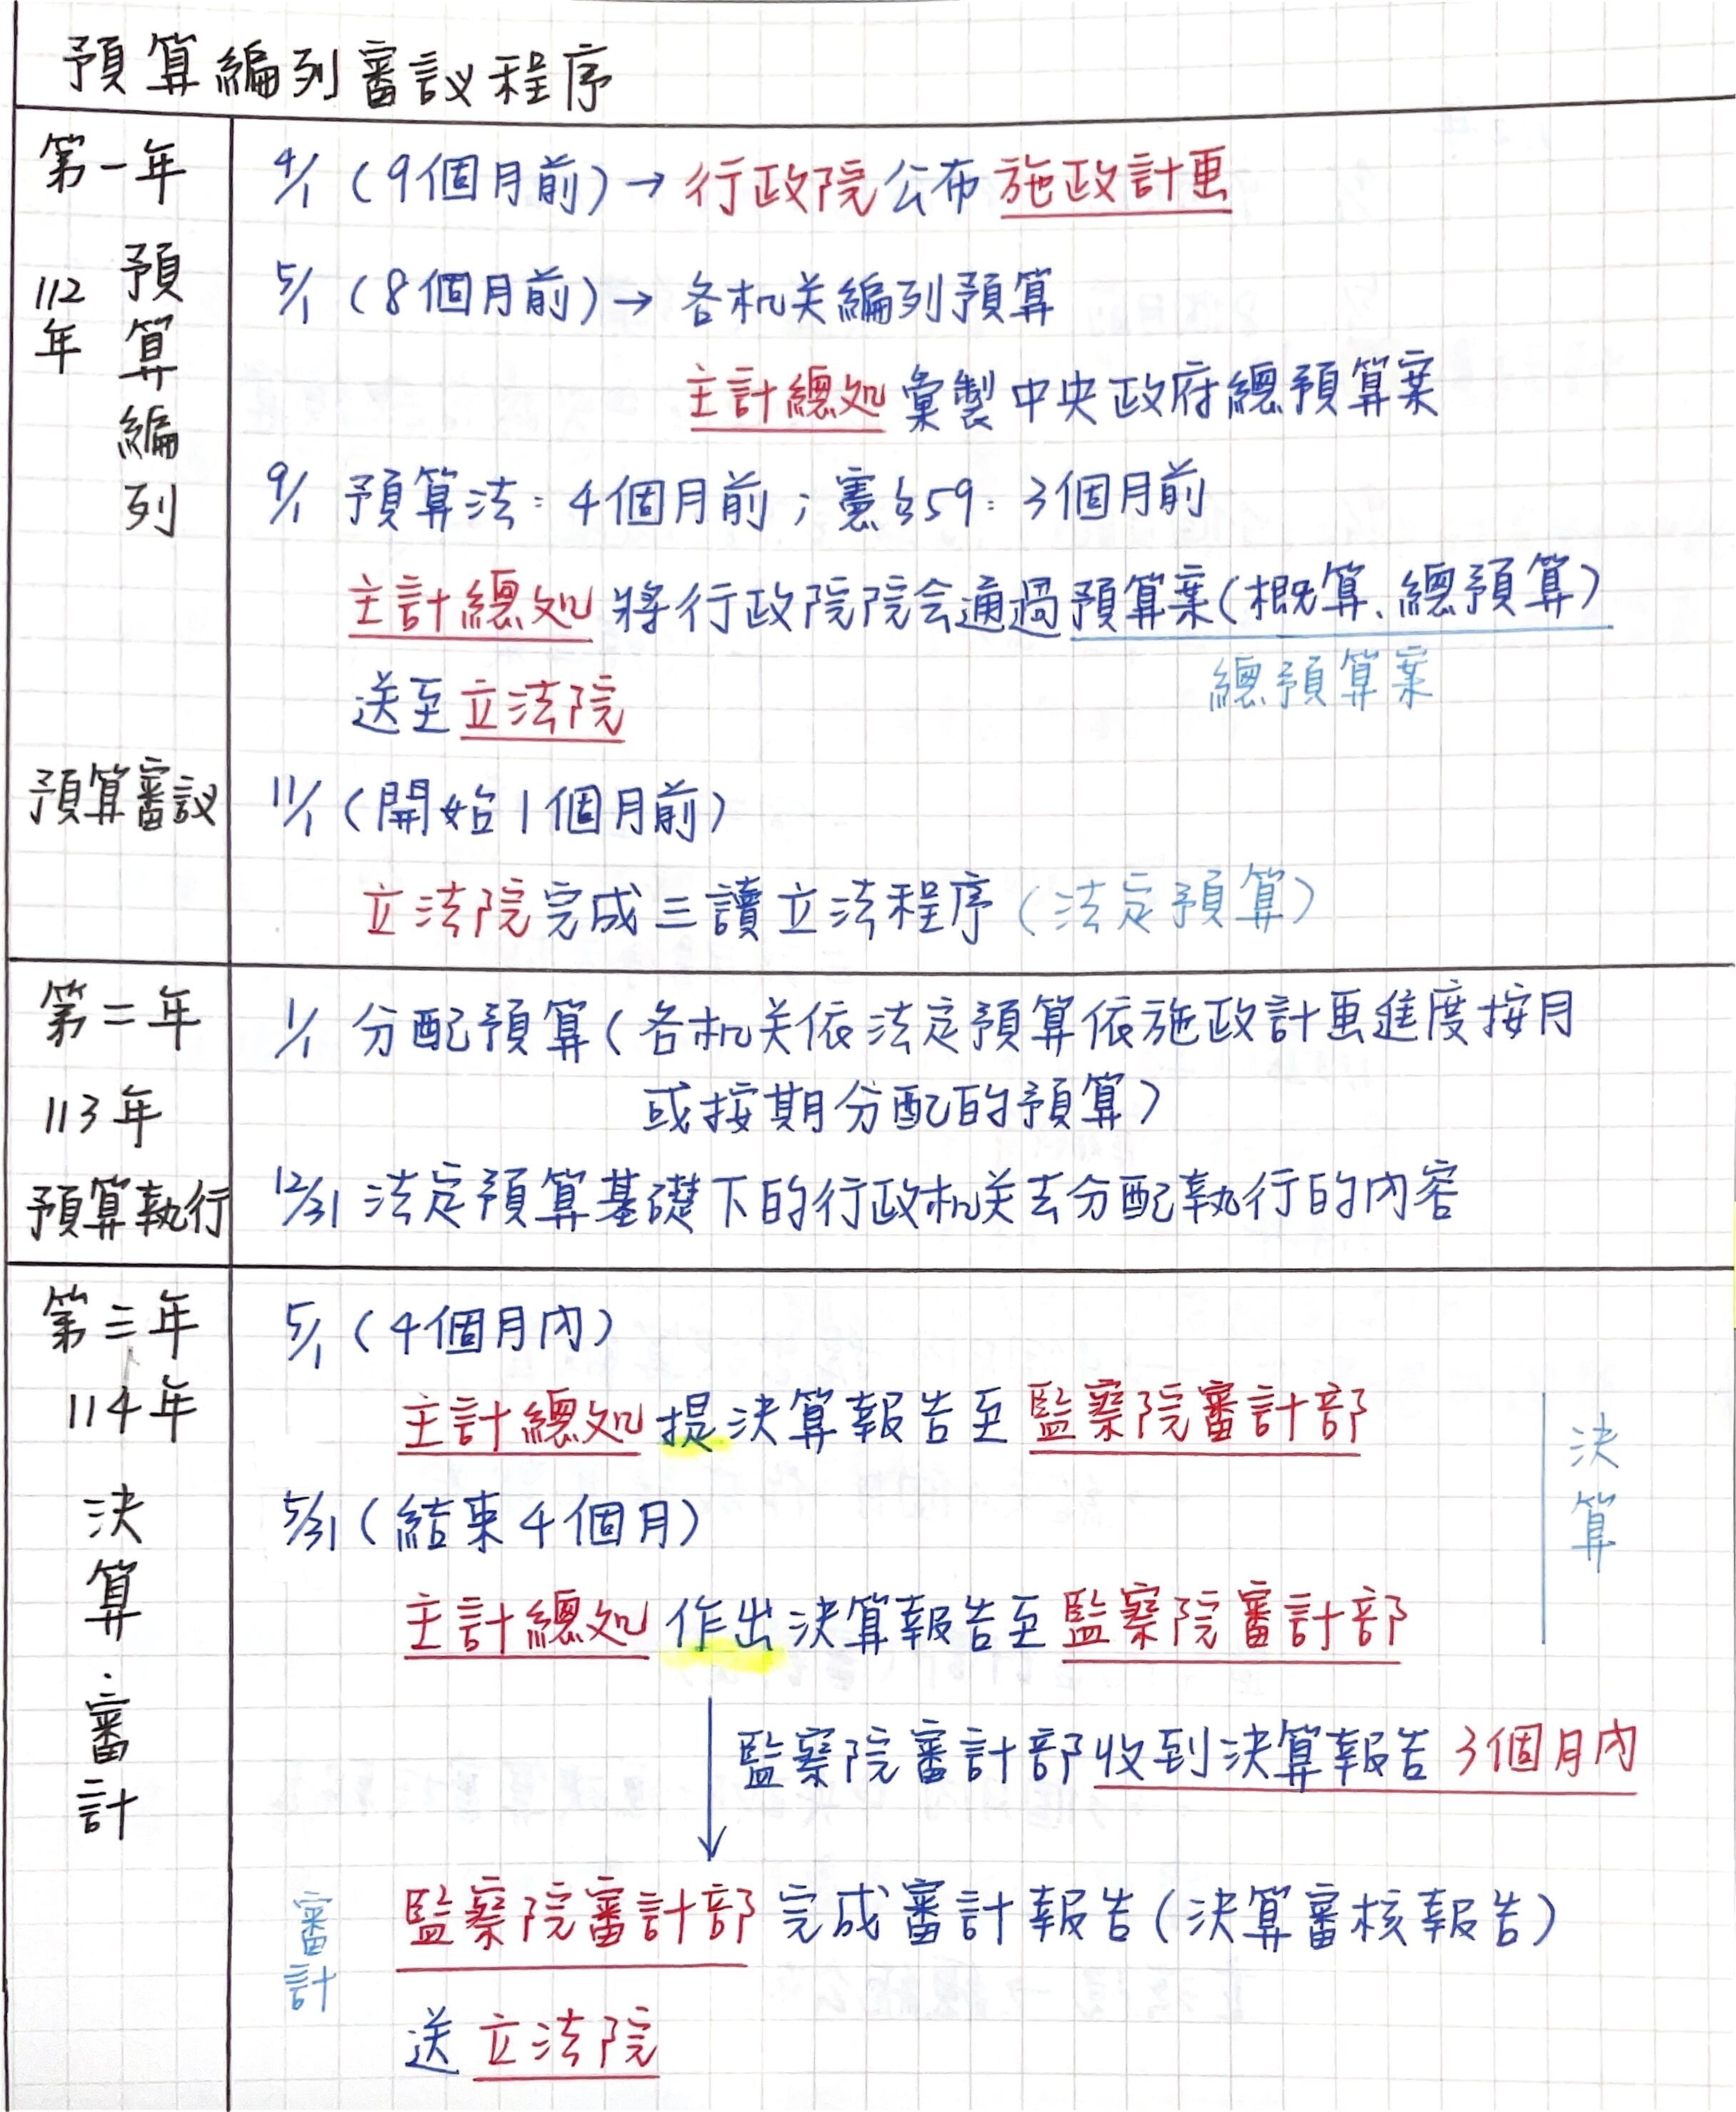 預算編列審議程序
第一年
112年
預算編列
4/1（9個月前）→ 行政院公布施政計画
5/1（8個月前）→ 各机关編列預算
主計總処彙製中央政府總預算案
9/1 預算法：4個月前；憲§59：3個月前
主計總処將行政院院会通過預算案（概算、總預算）
總預算案
送至立法院
預算審議
11/1（開始1個月前）
立法院完成三讀立法程序（法定預算）
第二年
113年
預算執行
1/1 分配預算（各机关依法定預算依施政計画進度按月
或按期分配的預算）
12/31 法定預算基礎下的行政机关去分配執行的內容
第三年
114年
決算．審計
5/1（4個月內）
主計總処提決算報告至監察院審計部
5/31（結束4個月）
主計總処作出決算報告至監察院審計部
決算
監察院審計部收到決算報告3個月內
審計
監察院審計部完成審計報告（決算審核報告）
送立法院